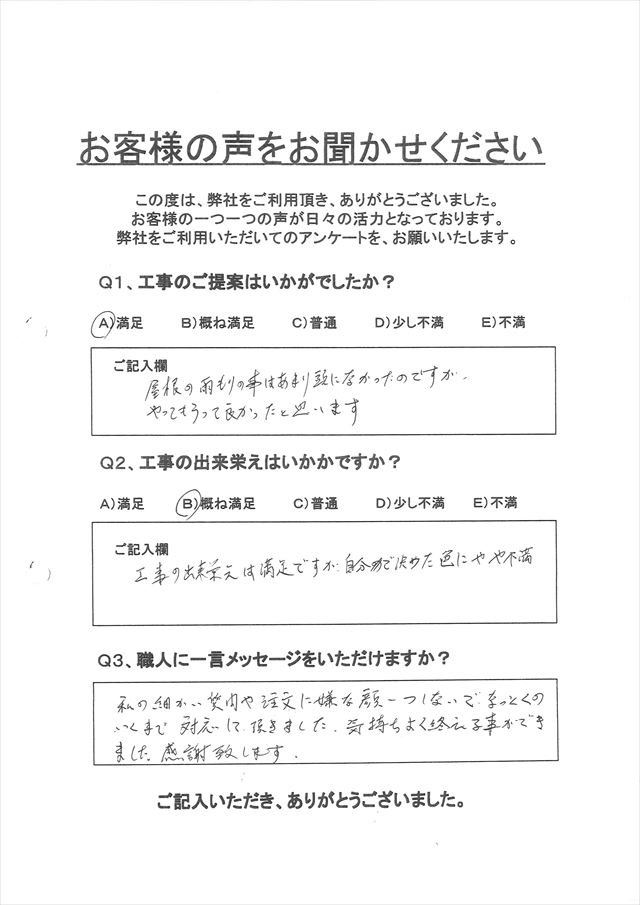 お客様の声をお聞かせください
この度は、弊社をご利用頂き、ありがとうございました。
お客様の一つ一つの声が日々の活力となっております。
弊社をご利用いただいてのアンケートを、お願いいたします。
Q1、工事のご提案はいかがでしたか？
A)満足 B)概ね満足 C)普通 D)少し不満 E)不満
ご記入欄
屋根の雨もりの事はあまり頭になかったのですが、
やってもらって良かったと思います
Q2、工事の出来栄えはいかかですか？
A)満足 B)概ね満足 C)普通 D)少し不満 E)不満
ご記入欄
工事の出来栄えは満足ですが自分で決めた色にやや不満
Q3、職人に一言メッセージをいただけますか？
私の細かい質問や注文に嫌な顔一つしないでなっとくの
いくまで対応して頂きました。気持ちよく終える事ができ
ました。感謝致します。
ご記入いただき、ありがとうございました。